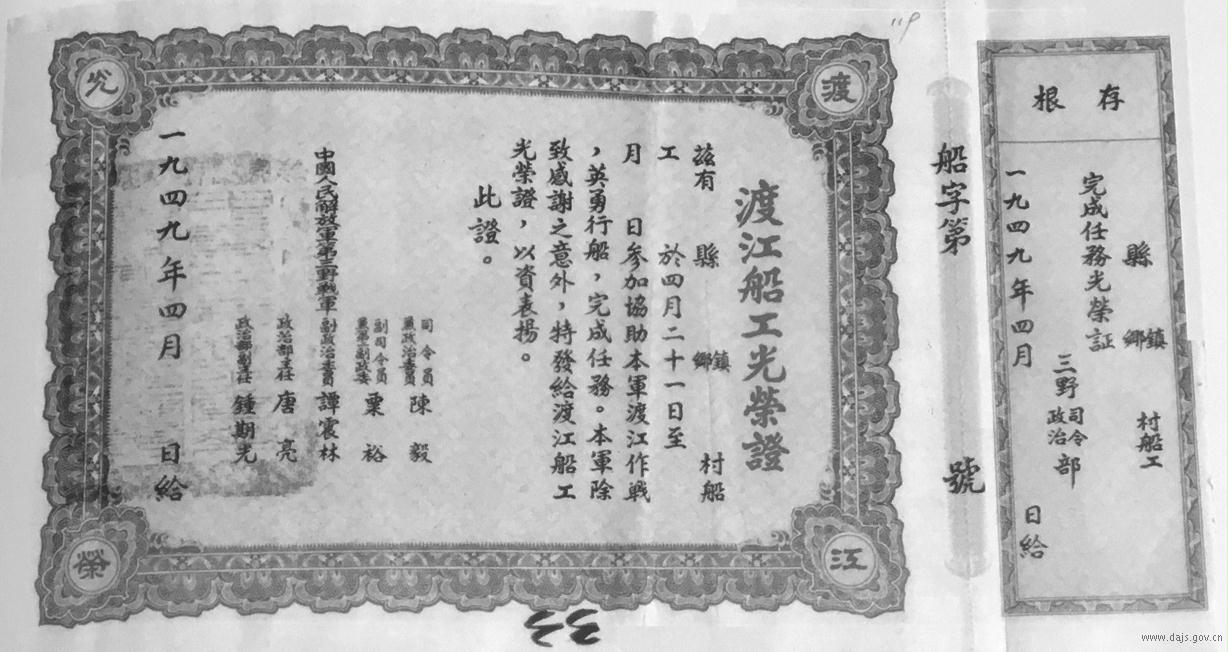 存根
縣 鎮鄉 村船工
完成任務光榮証
三野司令政治部
一九四九年四月 日給
船字第 號
渡江光榮
渡江船工光榮證
茲有 縣 鎮鄉 村船
工 於四月二十一日至
月 日參加協助本軍渡江作戰
，英勇行船，完成任務。本軍除
致感謝之意外，特發給渡江船工
光榮證，以資表揚。
此證。
中國人民解放軍第三野戰軍
司令員兼政治委員 陳毅
副司令員兼第一副政委 粟裕
副政治委員 譚震林
政治部主任 唐亮
政治部副主任 鍾期光
一九四九年四月 日給
33
www.dajs.gov.cn